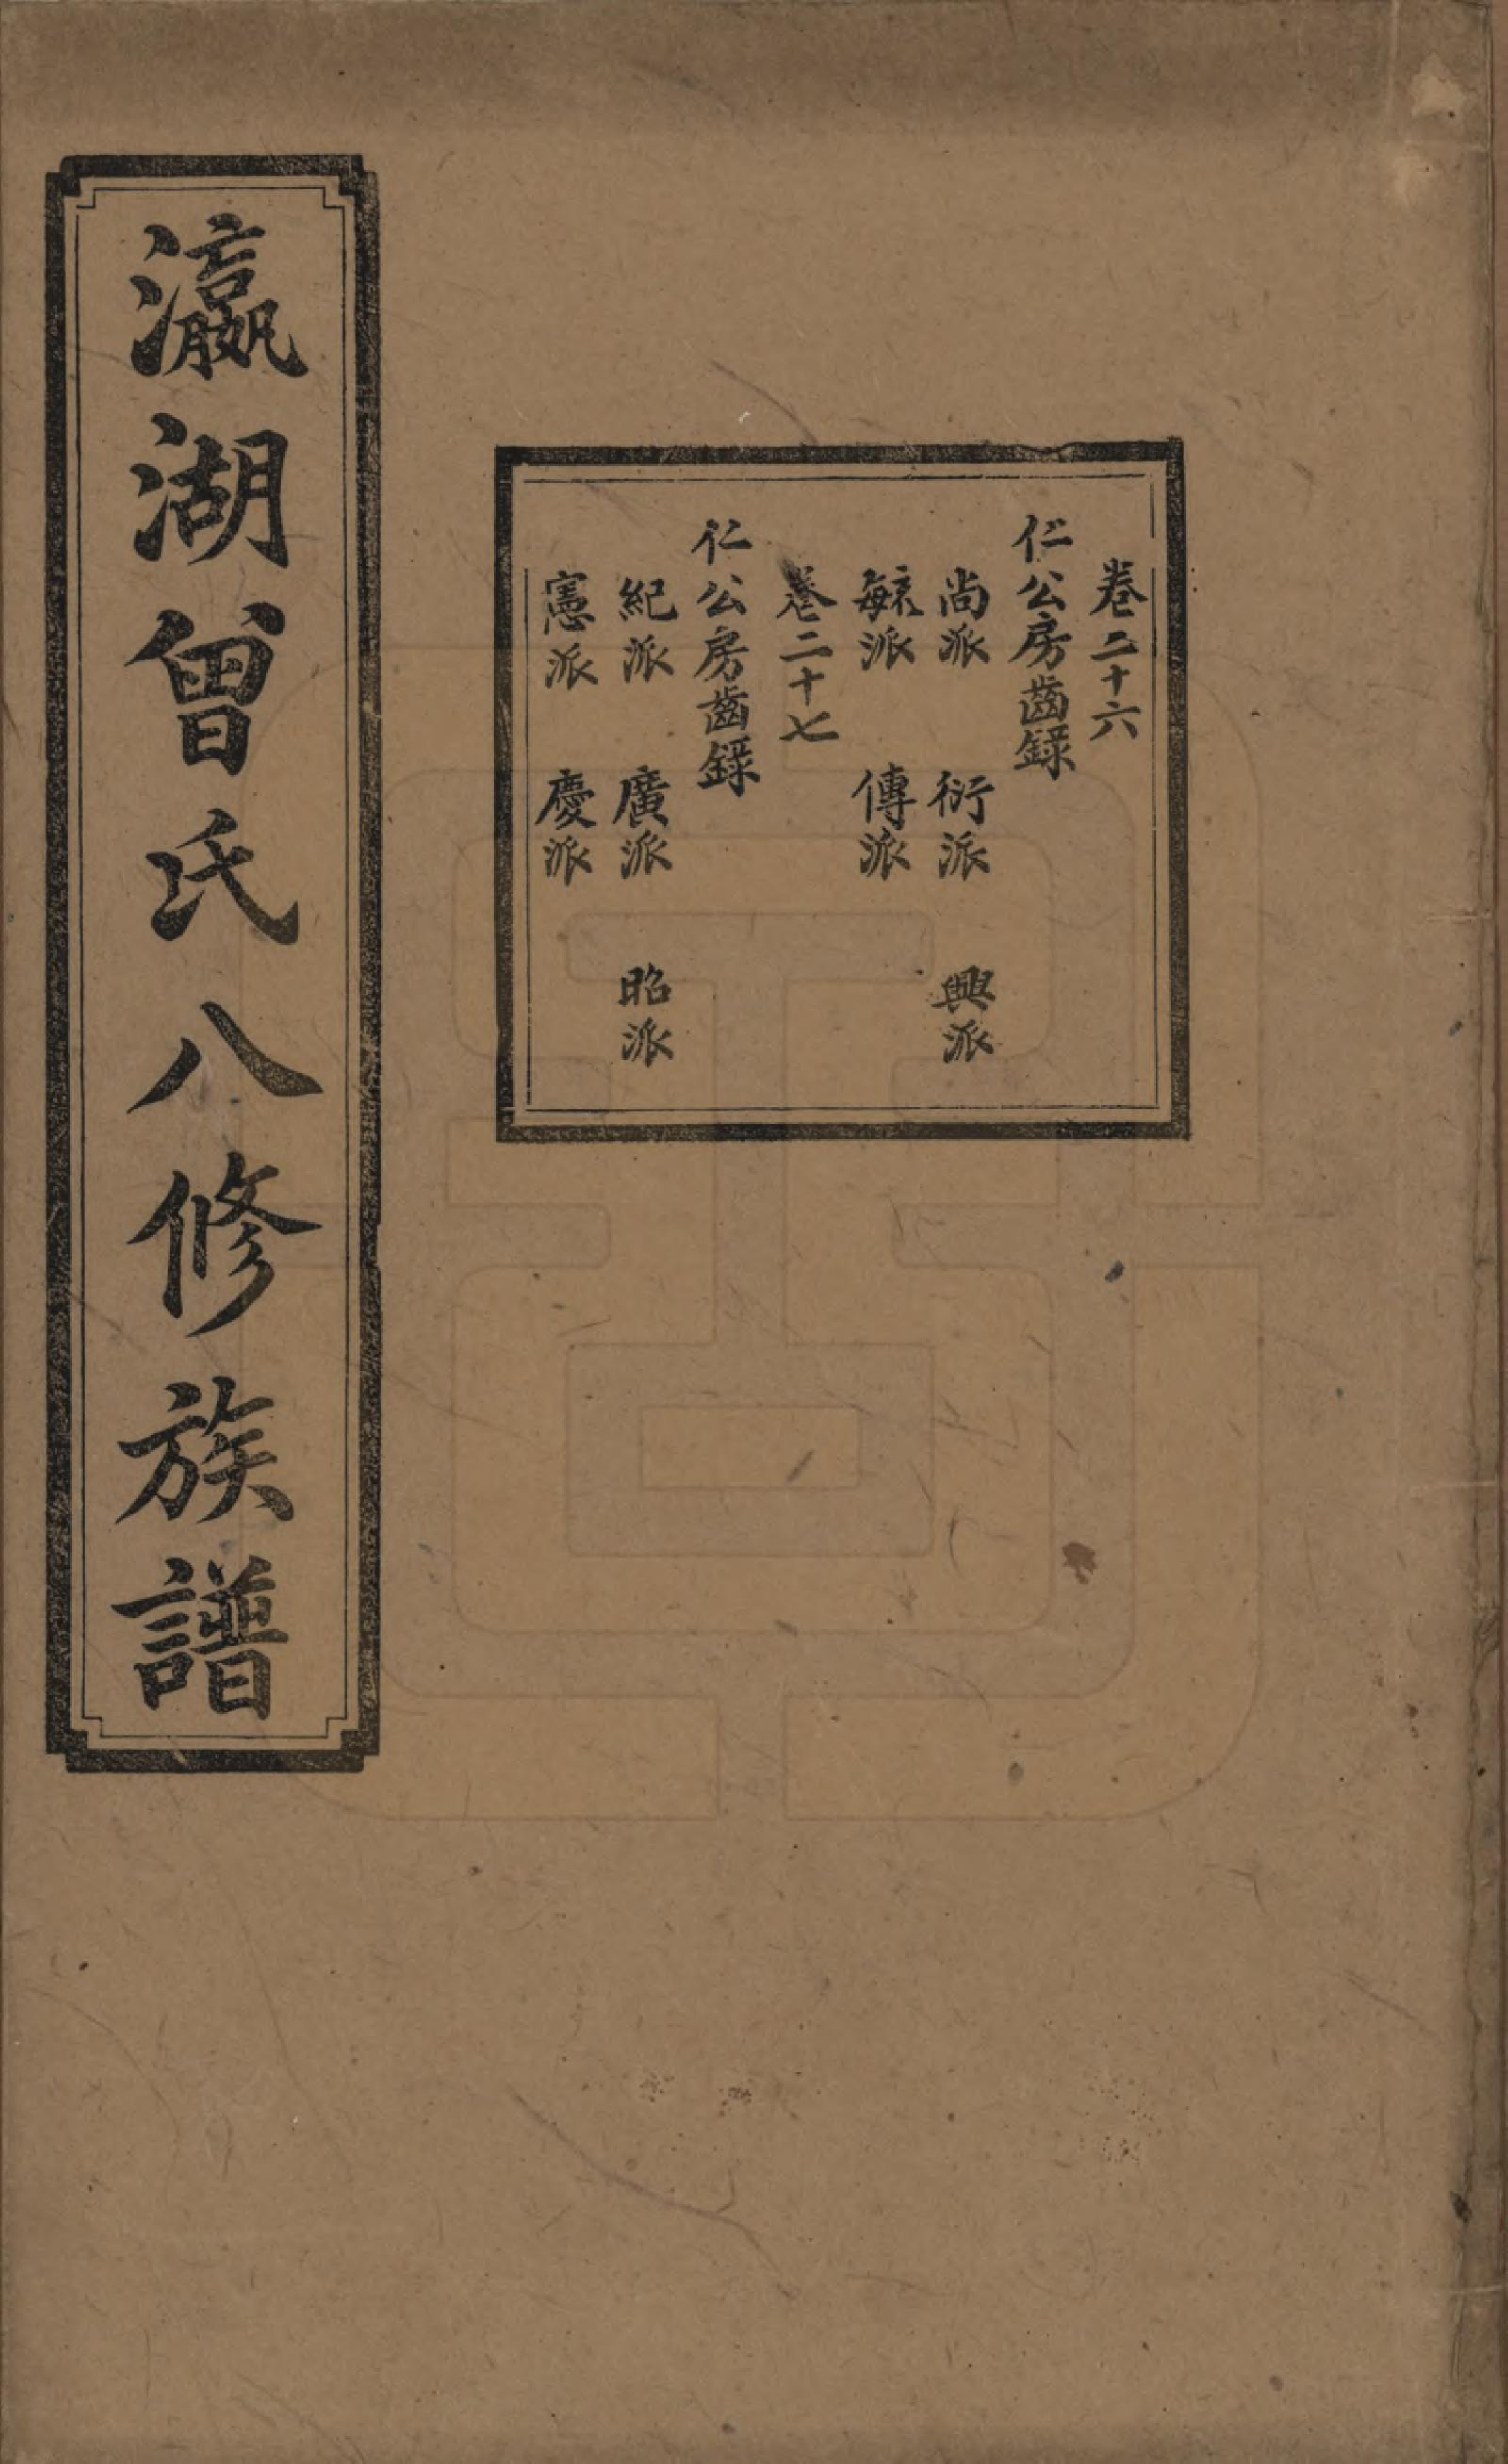 卷二十六
仁公房齒錄
尚派　衍派　興派
毓派　傳派
卷二十七
仁公房齒錄
紀派　廣派　昭派
憲派　慶派
瀛湖曾氏八修族譜